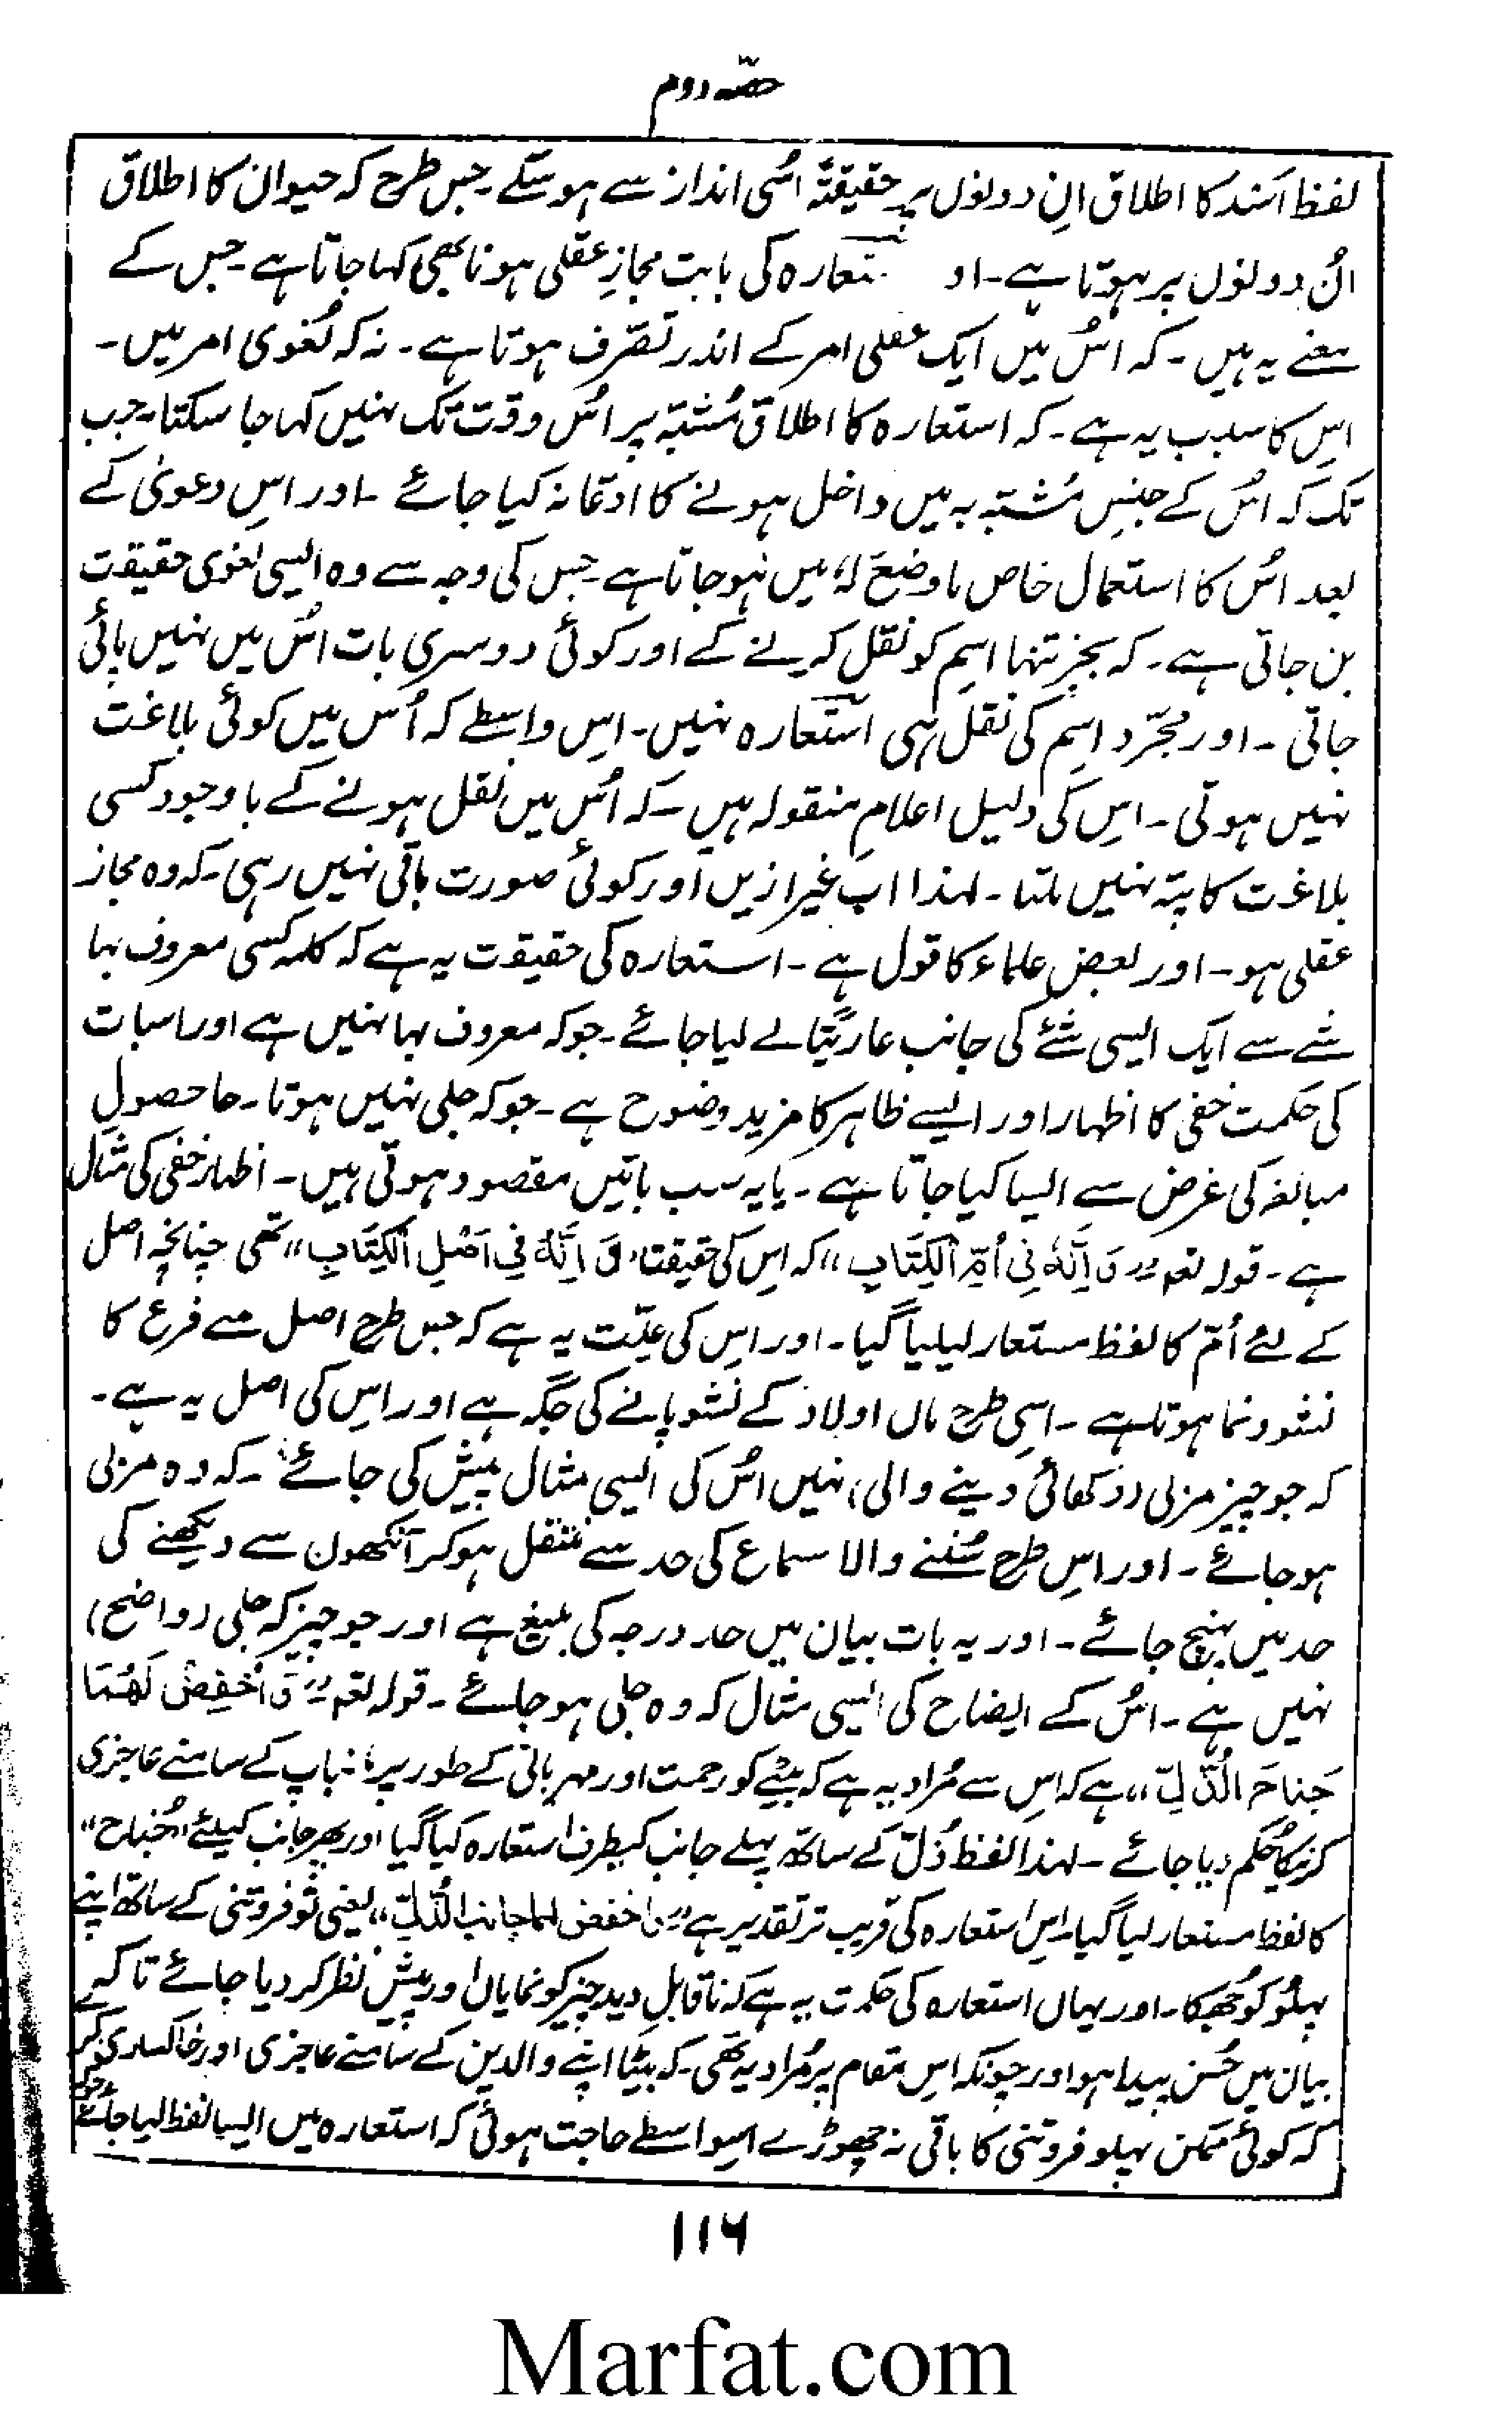 حصّہ دوم
لفظ اَسَد کا اطلاق اِن دولوں پر حقیقتہً اُسی انداز سے ہو سکے ۔ جس طرح کہ حیوان کا اطلاق
اُن دولوں پر ہوتا ہے ۔ او ستعارہ کی بابت مجازِ عقلی ہونا بھی کہا جاتا ہے ۔ جس کے
معنے یہ ہیں ۔ کہ اُس میں ایک عقلی امر کے اندر تصرّف ہوتا ہے ۔ نہ کہ لُغوی امر میں ۔
اِس کا سبب یہ ہے ۔ کہ استعارہ کا اطلاق مُشبّہ پر اُس وقت تک نہیں کہا جا سکتا ۔ جب
تک کہ اُس کے جنسِ مُشبّہ بہ میں داخل ہونے کا ادّعا نہ کیا جائے ۔ اور اِس دعویٰ کے
بعد اُس کا استعمال خاص ماوضع لہٗ میں ہوجاتا ہے ۔ جس کی وجہ سے وہ ایسی لغوی حقیقت
بن جاتی ہے ۔ کہ بجز تنہا اسِم کو نقل کرنے کے اور کوئی دوسری بات اُس میں نہیں پائی
جاتی ۔ اور مجرّد اسِم کی نقل ہی استعارہ نہیں ۔ اِس واسطے کہ اُس میں کوئی بلاغت
نہیں ہوتی ۔ اِس کی دلیل اعلامِ منقولہ ہیں ۔ کہ اُس میں نقل ہونے کے باوجود کسی
بلاغت کا پتہ نہیں ملتا ۔ لہٰذا اب غیر ازیں اور کوئی صورت باقی نہیں رہی ۔ کہ وہ مجاز
عقلی ہو ۔ اور بعض علماء کا قول ہے ۔ استعارہ کی حقیقت یہ ہے کہ کلمہ کسی معروف بہا
شے سے ایک ایسی شئے کی جانب عاریتًا لے لیا جائے ۔ جو کہ معروف بہا نہیں ہے اور اسبات
کی حکمت خفی کا اظہار اور ایسے ظاہر کا مزید وضوح ہے ۔ جو کہ جلی نہیں ہوتا ۔ حا حصولِ
مبالغہ کی غرض سے ایسا کیا جاتا ہے ۔ یا یہ سب باتیں مقصود ہوتی ہیں ۔ اظہار خفی کی مثال
ہے ۔ قولہ تعم ’’وَ اِنَّہٗ فِی اُمِّ الْکِتَابِ‘‘ کہ اِس کی حقیقت ’’وَ اِنَّہٗ فِی اَصْلِ الْکِتَابِ‘‘ تھی چنانچہ اصل
کے لئے اُمّ کا لفظ مستعار لیلیا گیا ۔ اور اِس کی علّت یہ ہے کہ جس طرح اصل سے فرع کا
نشوونما ہوتا ہے ۔ اسی طرح ماں اولاد کے نشو پانے کی جگہ ہے اور اِس کی اصل یہ ہے ۔
کہ جو چیز مرئی (دکھائی دینے والی) نہیں اُس کی ایسی مثال پیش کی جائے ۔ کہ وہ مرئی
ہو جائے ۔ اور اِس طرح سُننے والا سماع کی حد سے منتقل ہو کر آنکھوں سے دیکھنے کی
حد میں پہنچ جائے ۔ اور یہ بات بیان میں حد درجہ کی بلیغ ہے اور جو چیز کہ جلی (واضح)
نہیں ہے ۔ اُس کے ایضاح کی ایسی مثال کہ وہ جلی ہو جائے ۔ قولہ تعم ’’وَ اخْفِضْ لَھُمَا
جَنَاحَ الذُّلِّ‘‘ ہے کہ اِس سے مُراد یہ ہے کہ بیٹے کو رحمت اور مہربانی کے طور پر ماں باپ کے سامنے عاجزی
کرنیکا حُکم دیا جائے ۔ لہٰذا لفظ ذُلّ کے ساتھ پہلے جانب کیطرف استعارہ کیا گیا اور پھر جانب کیلئے ’’جُناح‘‘
کا لفظ مستعار لیا گیا ۔ اِس استعارہ کی قریب تر تقدیر ہے ’’واخفض لہما جانب الذُّلِّ‘‘ یعنی تُو فروتنی کے ساتھ اپنے
پہلُو کو جُھکا ۔ اور یہاں استعارہ کی حکمت یہ ہے کہ ناقابلِ دید چیز کو نمایاں اور پیش نظر کر دیا جائے تاکہ
بیان میں حُسن پیدا ہو اور چونکہ اِس مقام پر مُراد یہ تھی ۔ کہ بیٹا اپنے والدین کے سامنے عاجزی اور خاکساری کرے
کہ کوئی ممکن پہلو فروتنی کا باقی نہ چھوڑے اسیواسطے حاجت ہوئی کہ استعارہ میں ایسا لفظ لیا جائے جو کہ
۱۱۶
Marfat.com